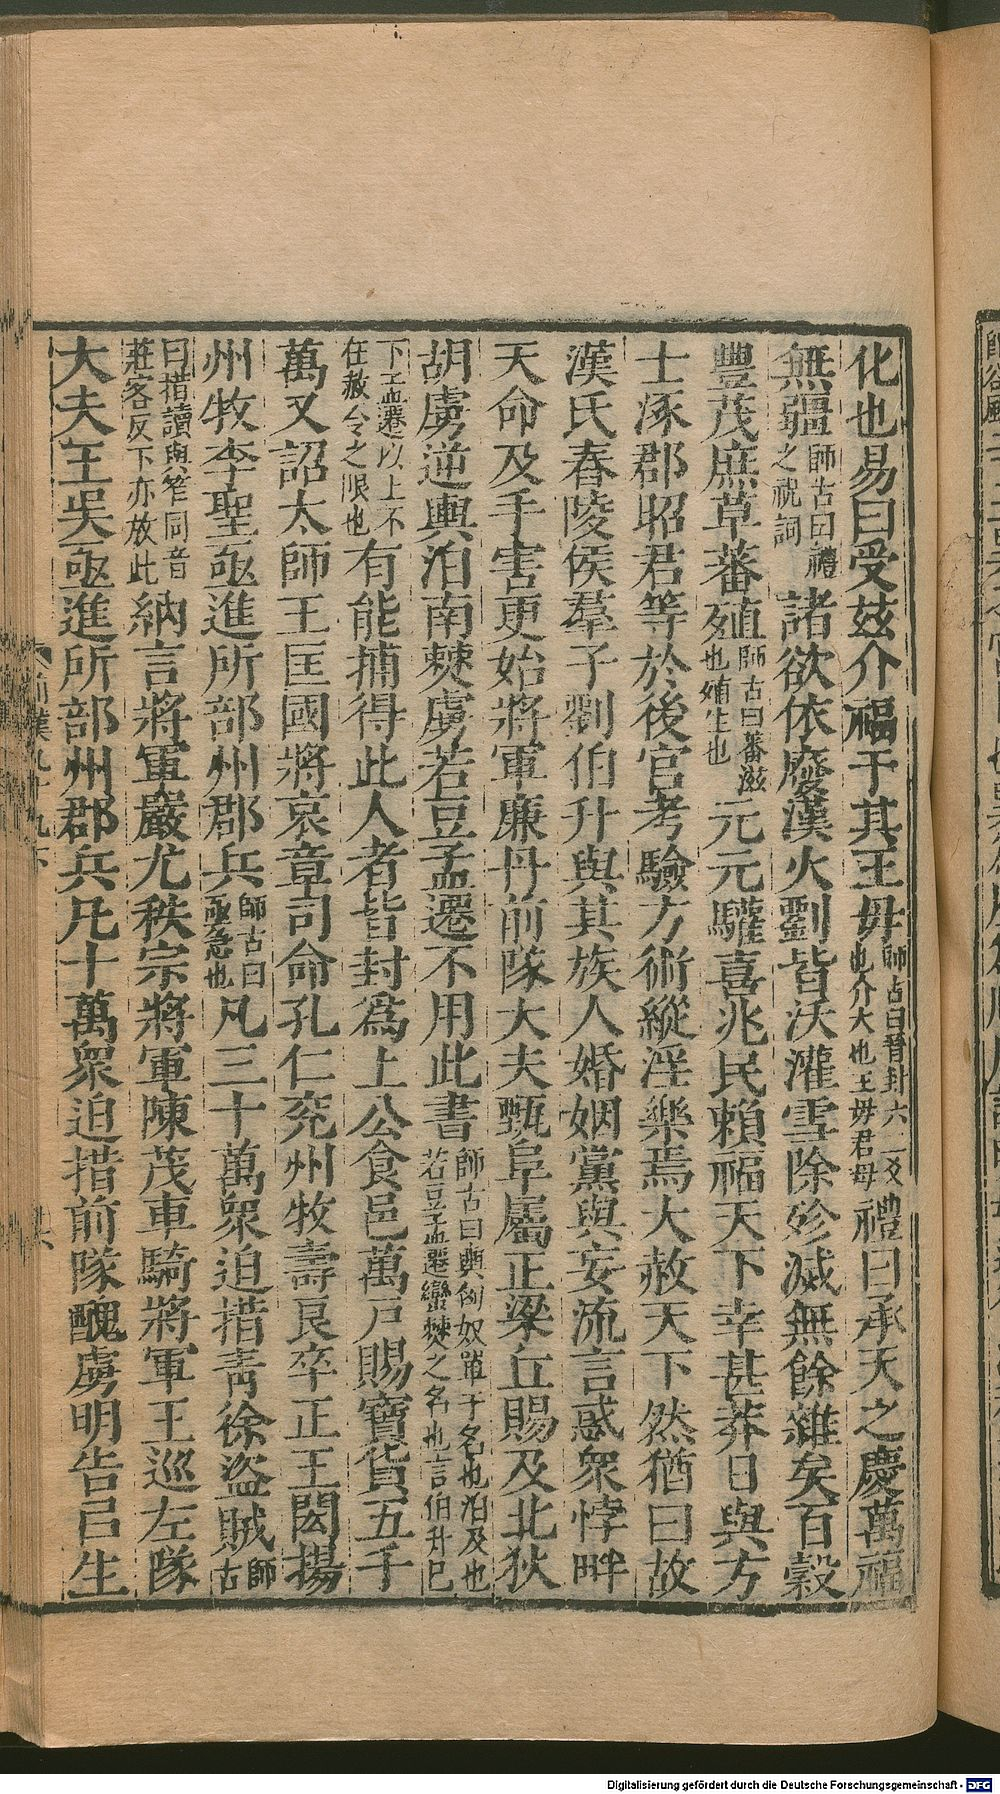 化也易曰受兹介福于其王母師古曰晉卦六二爻也介大也王母君母禮曰承天之慶萬福
無疆師古曰禮之祝詞諸欲依廢漢火劉皆沃灌雪除殄滅無餘雜矣百穀
豐茂庶草蕃殖師古曰蕃滋也殖生也元元驩喜兆民賴福天下幸甚莽日與方
士涿郡昭君等於後宮考驗方術縱淫樂焉大赦天下然猶曰故
漢氏舂陵侯羣子劉伯升與其族人婚姻黨與妄流言惑衆悖畔
天命及手害更始將軍廉丹前隊大夫甄阜屬正梁丘賜及北狄
胡虜逆輿洎南僰虜若豆孟遷不用此書師古曰輿匈奴單于名也洎及也若豆孟遷蠻僰之名也言伯升已
下孟遷以上不在赦令之限也有能捕得此人者皆封爲上公食邑萬戶賜寶貨五千
萬又詔太師王匡國將哀章司命孔仁兖州牧壽良卒正王閎揚
州牧李聖亟進所部州郡兵師古曰亟急也凡三十萬衆迫措青徐盜賊師古
曰措讀與笮同音莊客反下亦放此納言將軍嚴尤秩宗將軍陳茂車騎將軍王巡左隊
大夫王吳亟進所部州郡兵凡十萬衆迫措前隊醜虜明告已生
前漢九十九下
Digitalisierung gefördert durch die Deutsche Forschungsgemeinschaft - DFG